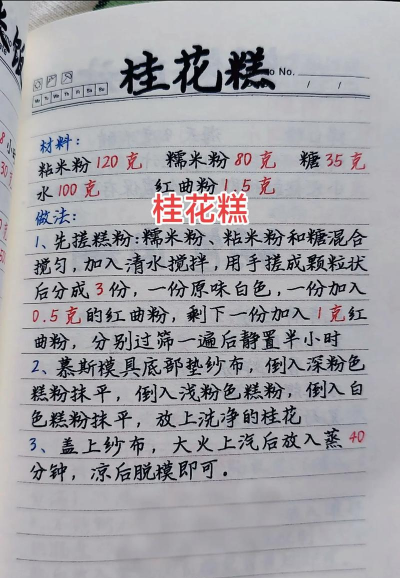 桂花糕
No.
Mo Tu We Th Fr Sa Su
/ /
材料:
粘米粉120克 糯米粉80克 糖35克
水100克 红曲粉1.5克
桂花糕
做法:
1、先搓糕粉:糯米粉、粘米粉和糖混合
搅匀,加入清水搅拌,用手搓成颗粒状
后分成3份,一份原味白色,一份加入
0.5克的红曲粉,剩下一份加入1克红
曲粉,分别过筛一遍后静置半小时
2、慕斯模具底部垫纱布,倒入深粉色
糕粉抹平,倒入浅粉色糕粉,倒入白
色糕粉抹平,放上洗净的桂花
3、盖上纱布,大火上汽后放入蒸40
分钟,凉后脱模即可.